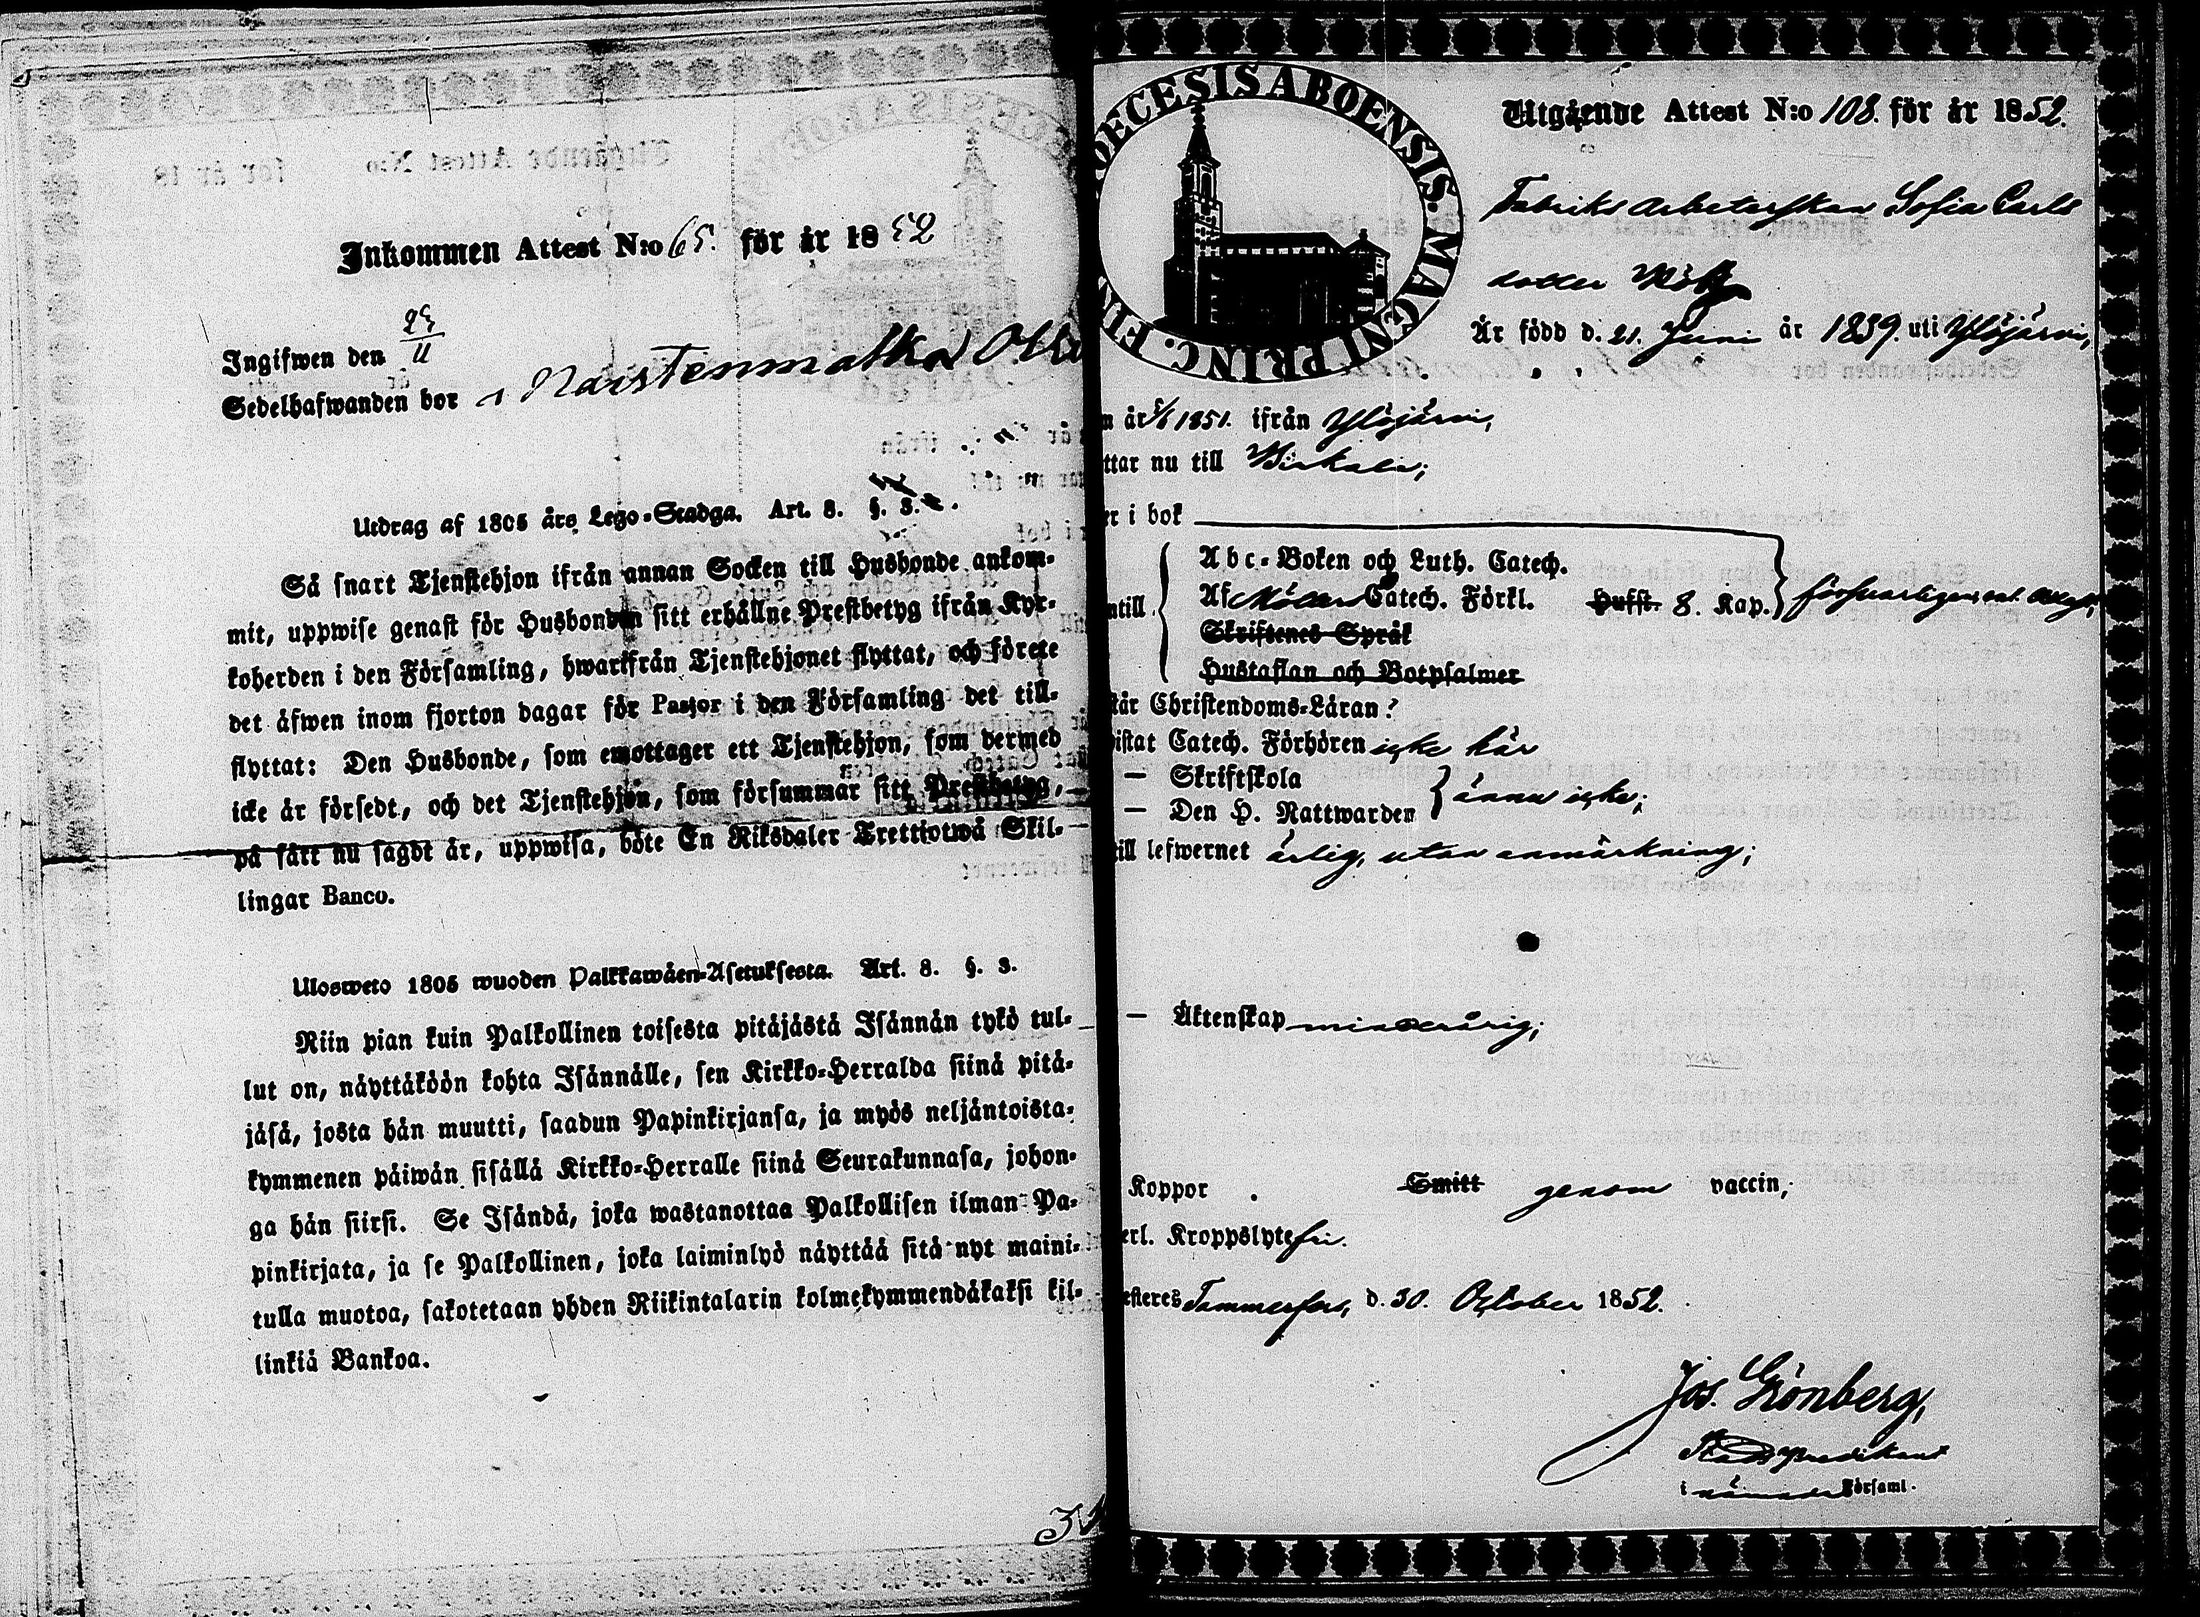 Inkommen Attest N:o 65. för år 1852
Ingifwen den 23/11
Sedelhafwanden bor i Naistenmatka
Utdrag af 1805 års Lego-Stadga. Art. 8. §. 3.
Så snart Tjenstehjon ifrån annan Socken till Husbonde ankom-
mit, uppwise genast för Husbonden sitt erhållne Prestbetyg ifrån Kyr-
koherden i den Församling, hwarifrån Tjenstehjonet flyttat, och förete
det äfwen inom fjorton dagar för Pastor i den Församling det till-
flyttat: Den Husbonde, som emottager ett Tjenstehjon, som dermed
icke är försedt, och det Tjenstehjon, som försummar sitt Prestbetyg,
på sätt nu sagdt är, uppwisa, böte En Riksdaler Trettiotwå Skil-
lingar Banco.
Uloswето 1805 wuoden Palkkawäen-Asetuksesta. Art. 8. §. 3.
Niin pian kuin Palkollinen toisesta pitäjästä Isännän tykö tul-
lut on, näyttäköön kohta Isännälle, sen Kirkko-Herralda siinä pitä-
jäsä, josta hän muutti, saadun Papinkirjansa, ja myös neljäntoista-
kymmenen päiwän sisällä Kirkko-Herralle siinä Seurakunnasa, johon-
ga hän siirsi. Se Isändä, joka wastanottaa Palkollisen ilman Pa-
pinkirjata, ja se Palkollinen, joka laiminlyö näyttää sitä nyt maini-
tulla muotoa, sakotetaan yhden Riikintalarin kolmekymmendäkaksi kil-
linkiä Bankoa.
DECESIS ABOENSIS. MAGNI PRINC. FIN
Utgående Attest N:o 108. för år 1852.
Fabriks arbeterskan Sofia Carls
dotter
Är född d. 21. Juni år 1839. uti Ylöjärvi,
n år 5/6 1851. ifrån Ylöjärvi,
ttar nu till Birkala;
er i bok
Abc-Boken och Luth. Catech.
ntill Af Möllers Catech. Förkl. Hufst. 8. Kap. försvarligen,
Skriftenes Språk
Hustaflan och Botpsalmer
står Christendoms-Läran?
istat Catech. Förhören icke här
— Skriftskola
— Den H. Nattwarden ännu icke;
till lefwernet ärlig, utan anmärkning;
— Äktenskap minderårig;
Koppor . Smitt genom vaccin,
erl. Kroppslyte fri.
esteres Tammerfors, d. 30. October 1852.
Jos. Grönberg,
Stads predikant
i nämnde Församl.